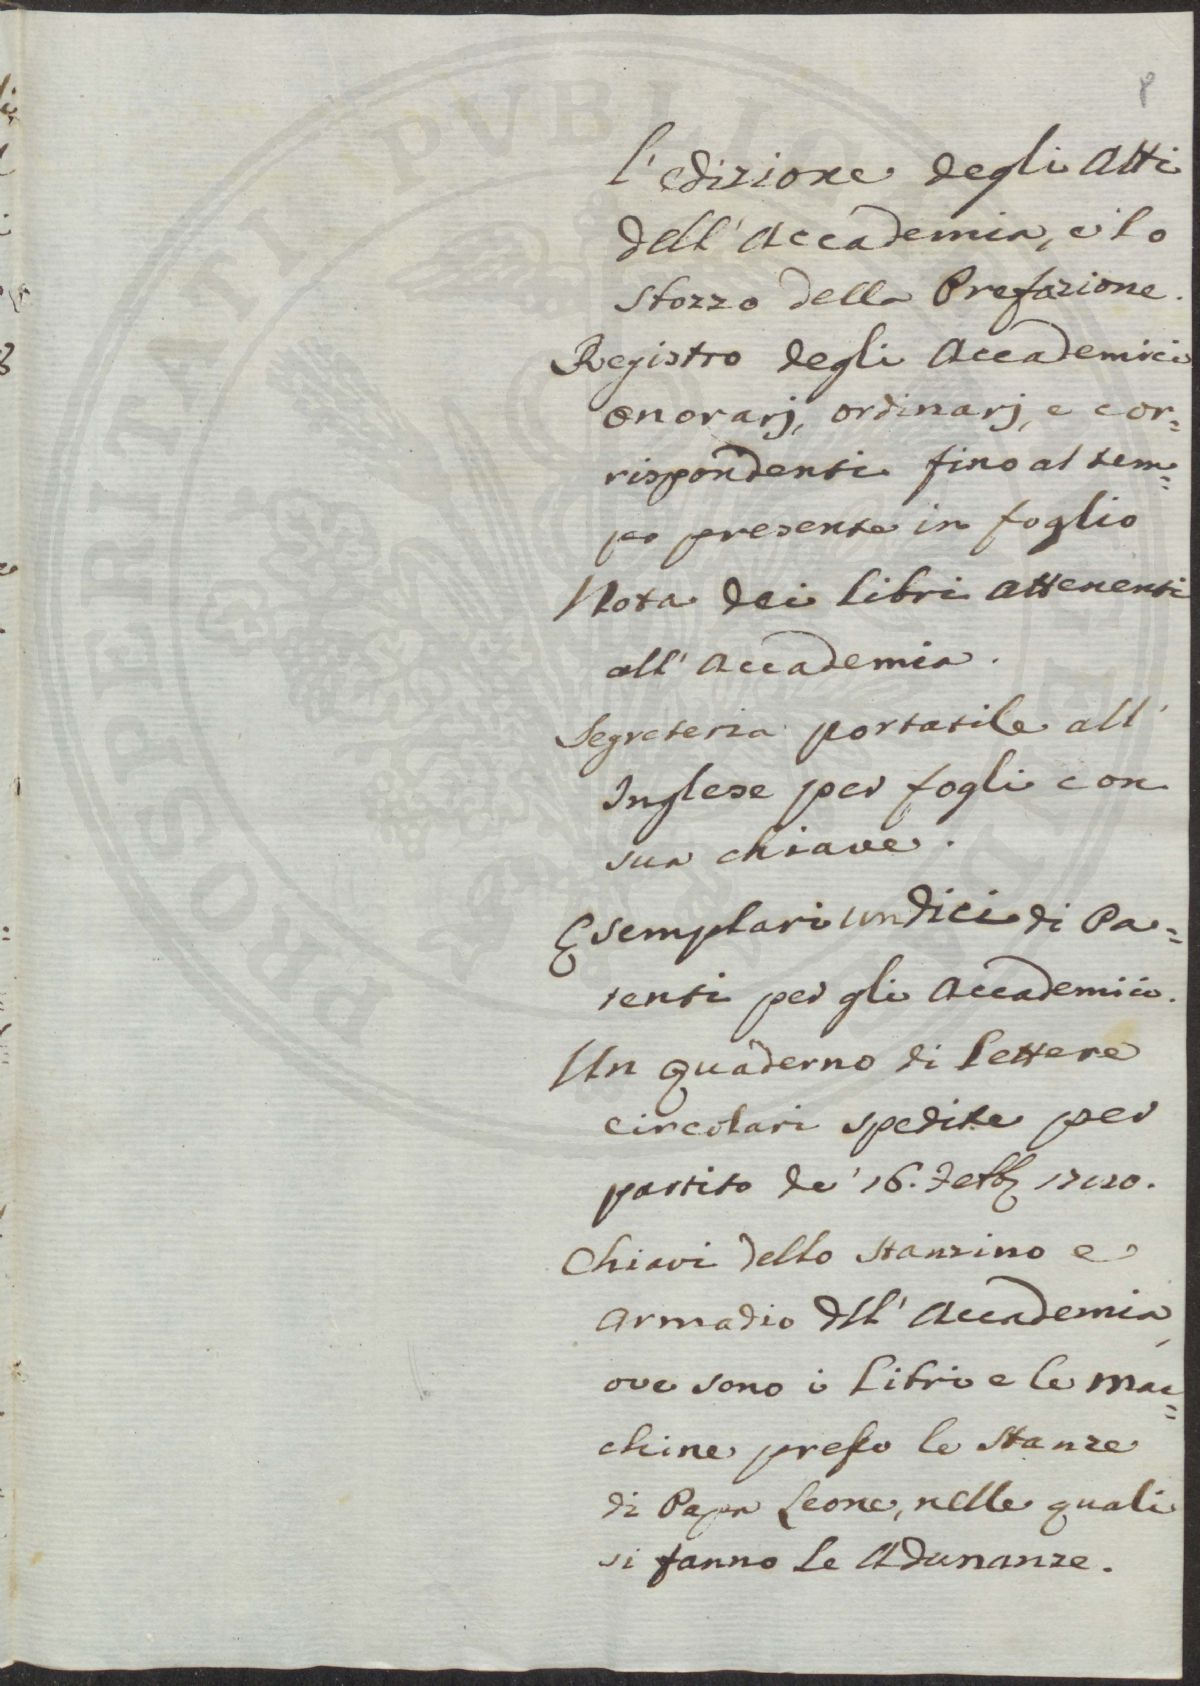 l'edizione degli Atti
dell'Accademia, e lo
sfozzo della Prefazione.
Registro degli Accademici
onorarj, ordinarj, e cor=
rispondenti fino al tem=
po presente in foglio
Nota dei libri attenenti
all'Accademia.
Segreteria portatile all'
Inglese per fogli con
sua chiave.
Esemplari undici di Pa=
tenti per gli Accademici.
Un quaderno di lettere
circolari spedite per
partito de' 16.
Chiavi dello stanzino e
armadio dell'Accademia,
ove sono i libri e le mac=
chine presso le stanze
di Papa Leone, nelle quali
si fanno le Adunanze.